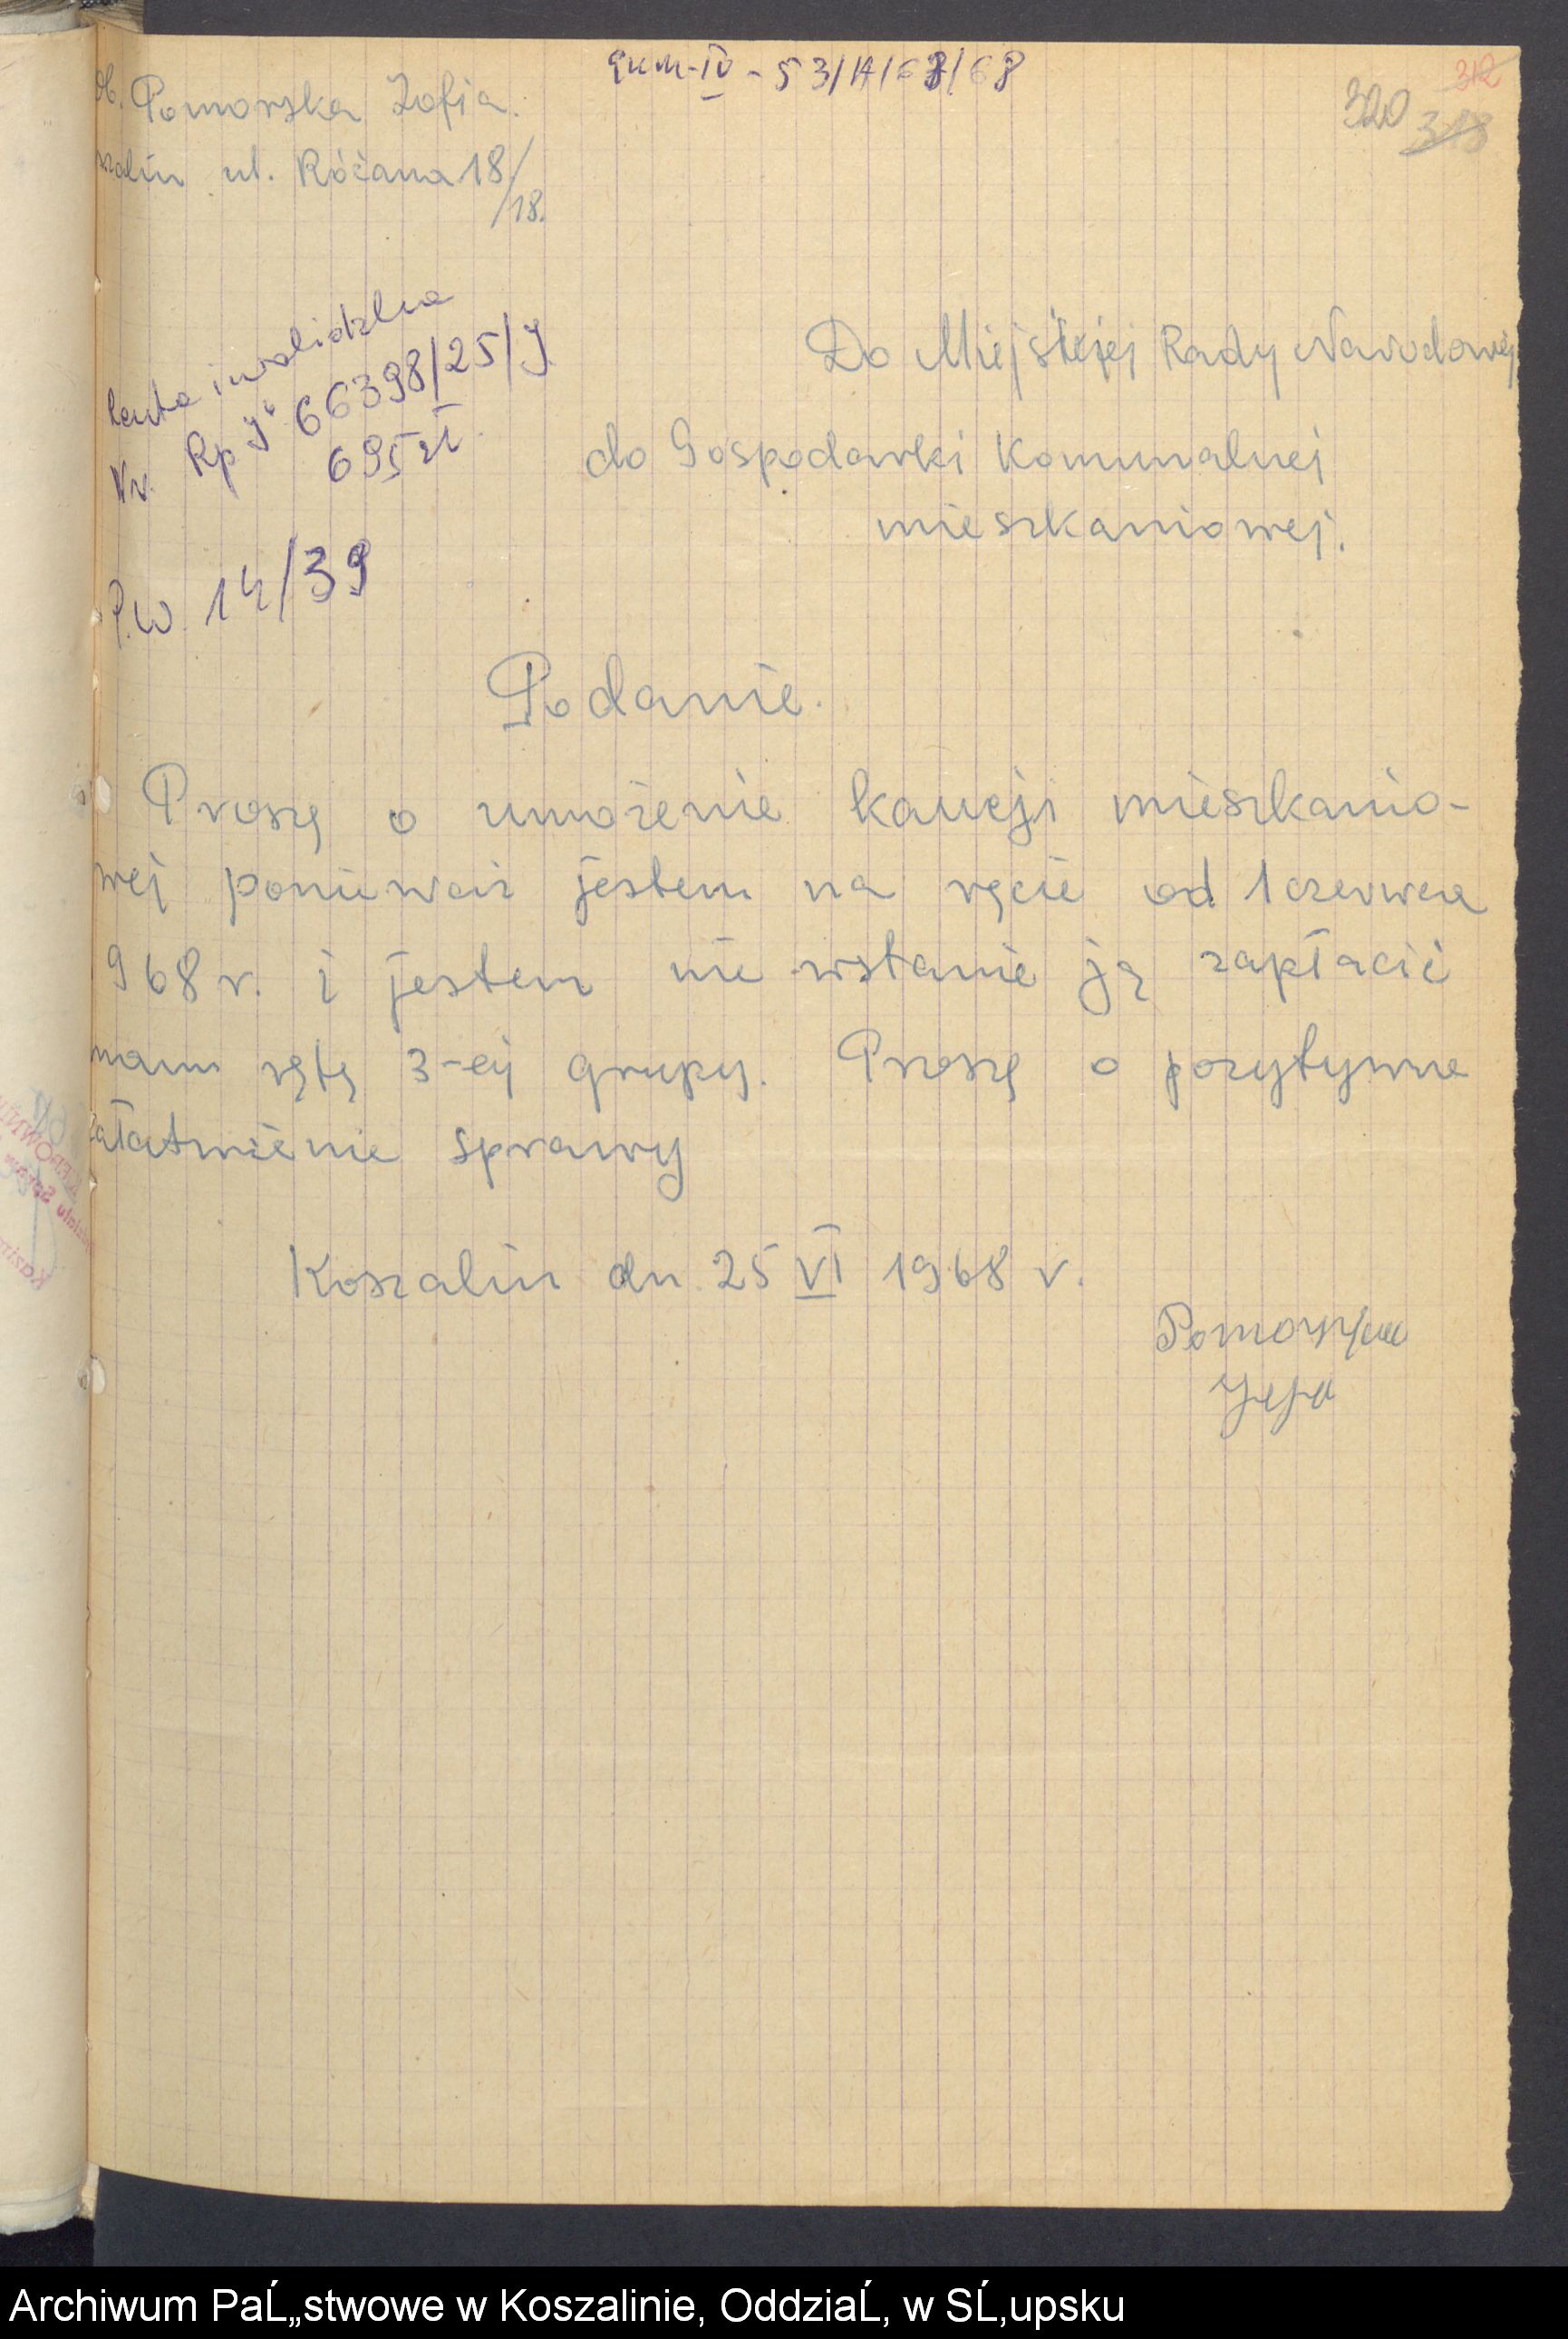 Ob. Pomorska Zofia.
szalin ul. Różana 18/
/18.
gkm-IV-53/14/68/68
312
320 318
Renta inwalidzka
Nr. Rp J 66398/25/J
695 zł.
P.W. 14/39
Do Miejskiej Rady Narodowej
do Gospodarki Komunalnej
mieszkaniowej.
Podanie.
Proszę o umożenie kaucji mieszkanio-
wej poniewarz jestem na ręcie od 1 czerwca
968 r. i jestem nie wstanie ją zapłacić
mam rętę 3-ej grupy. Proszę o pozytywne
załatwienie sprawy
Koszalin dn. 25 VI 1968 r.
Pomorska
Zofia
Archiwum PaĹ„stwowe w Koszalinie, OddziaĹ‚ w SĹ‚upsku